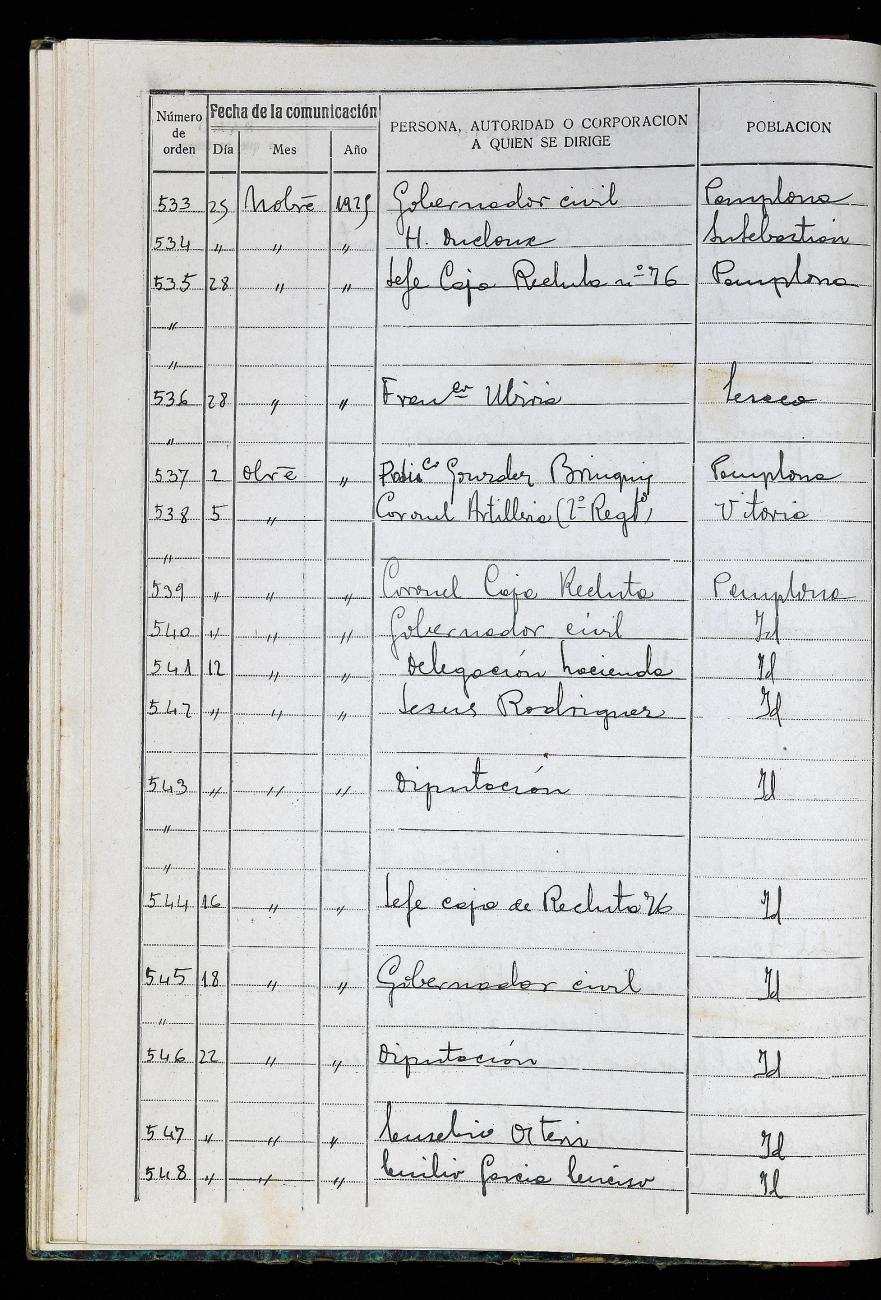 Número de orden Fecha de la comunicación PERSONA, AUTORIDAD O CORPORACION A QUIEN SE DIRIGE POBLACION
Día Mes Año
533 25 Nobre 1925 Gobernador civil Pamplona
534 " " " H. Ducloux Snsebastián
535 28 " " Jefe Caja Recluta nº 76 Pamplona
"
"
536 28 " " Franco Ubiria Lesaca
"
537 2 Dbre " Gonzalez Pamplona
538 5 " Coronel Artilleria (2º Regto) Vitoria
"
539 " " " Coronel Caja Recluta Pamplona
540 " " " Gobernador civil Id
541 12 " " Delegación hacienda Id
542 " " " Jesus Rodriguez Id
543 " " " Diputación Id
"
"
544 16 " " Jefe caja de Recluta 76 Id
545 18 " " Gobernador civil Id
"
546 22 " " Diputación Id
547 " " " Eusebio Id
548 " " " Emilio Garcia Enciso Id